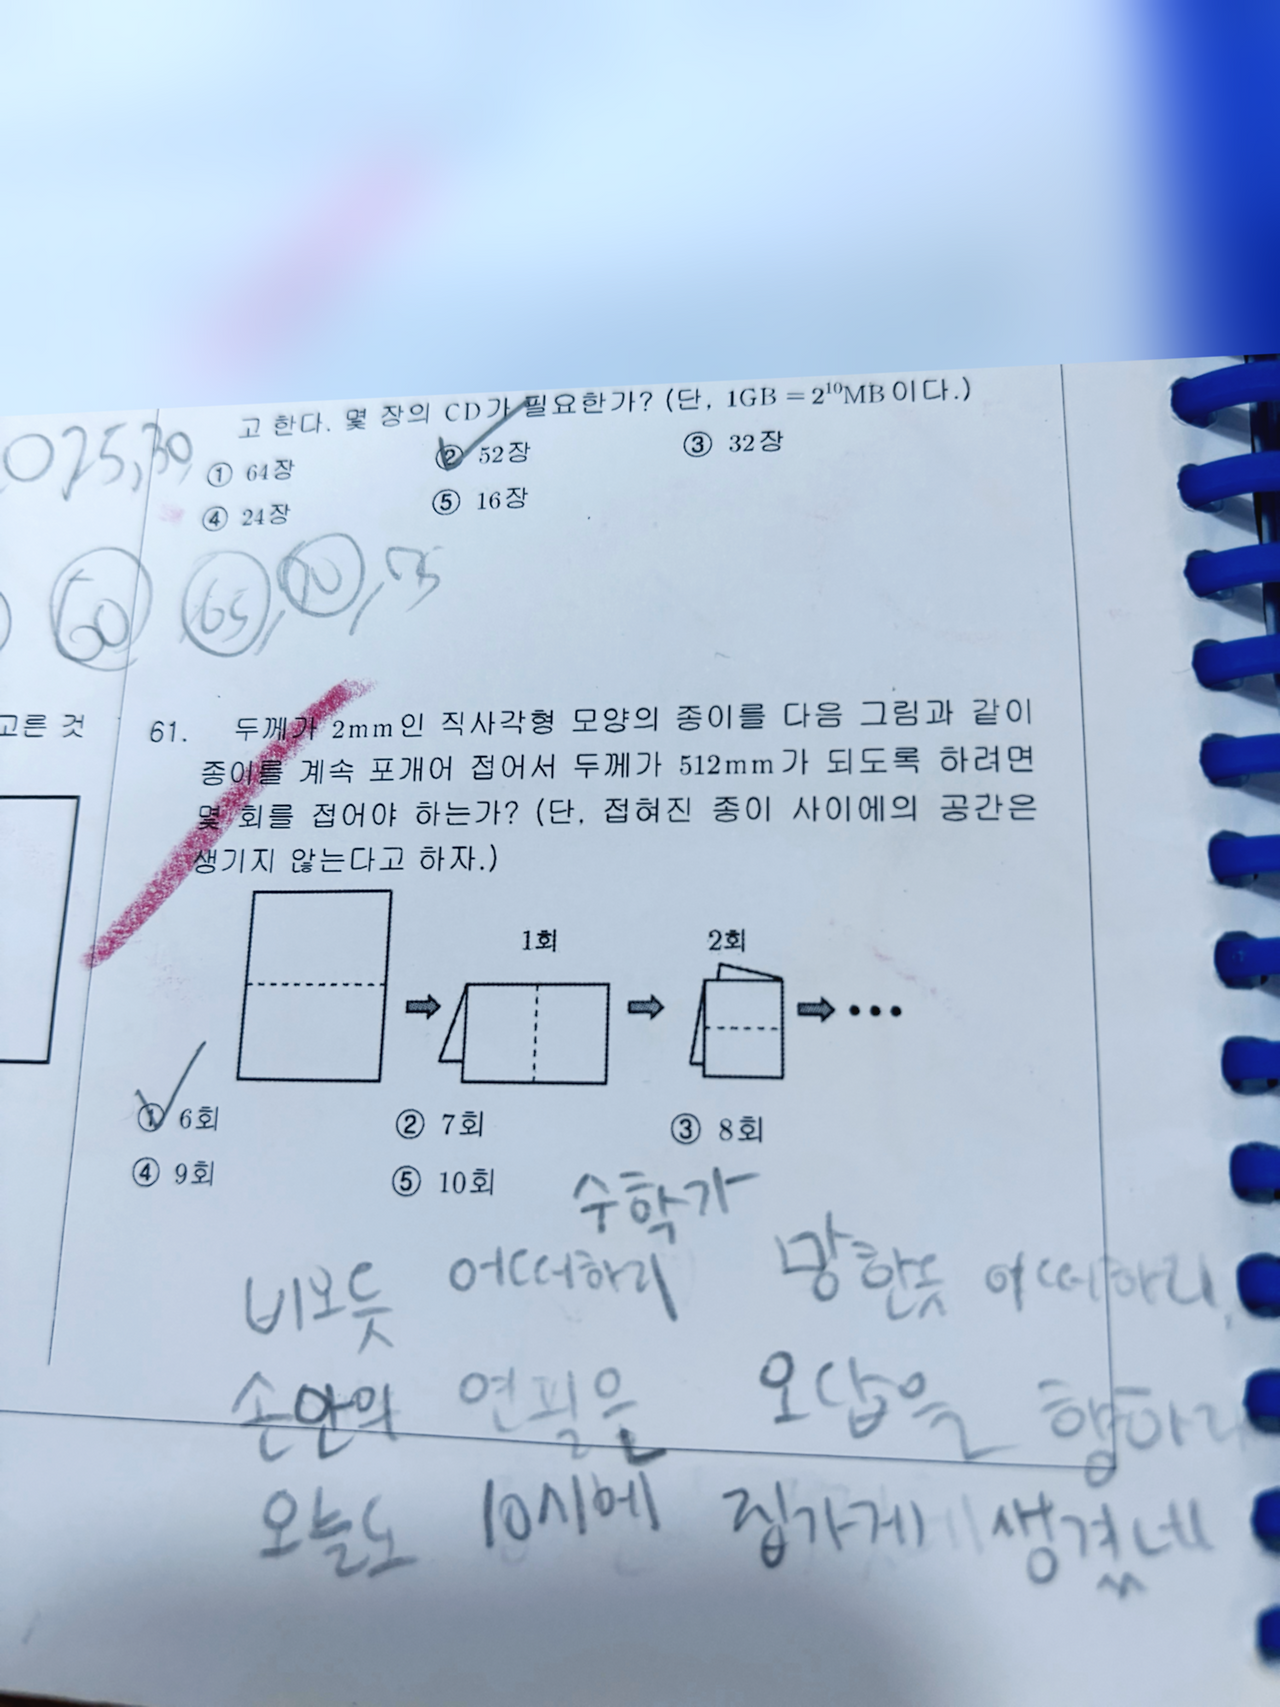 고 한다. 몇 장의 CD가 필요한가? (단, 1GB = 2¹⁰MB이다.)
① 64장 ② 52장 ③ 32장
④ 24장 ⑤ 16장
60 65, 70, 75
고른 것
61. 두께가 2mm인 직사각형 모양의 종이를 다음 그림과 같이
종이를 계속 포개어 접어서 두께가 512mm가 되도록 하려면
몇 회를 접어야 하는가? (단, 접혀진 종이 사이에의 공간은
생기지 않는다고 하자.)
1회 2회
① 6회 ② 7회 ③ 8회
④ 9회 ⑤ 10회
수학가
비오듯 어떠하리 망한듯 어떠하리,
손안의 연필은 오답을 향하리
오늘도 10시에 집가게 생겼네